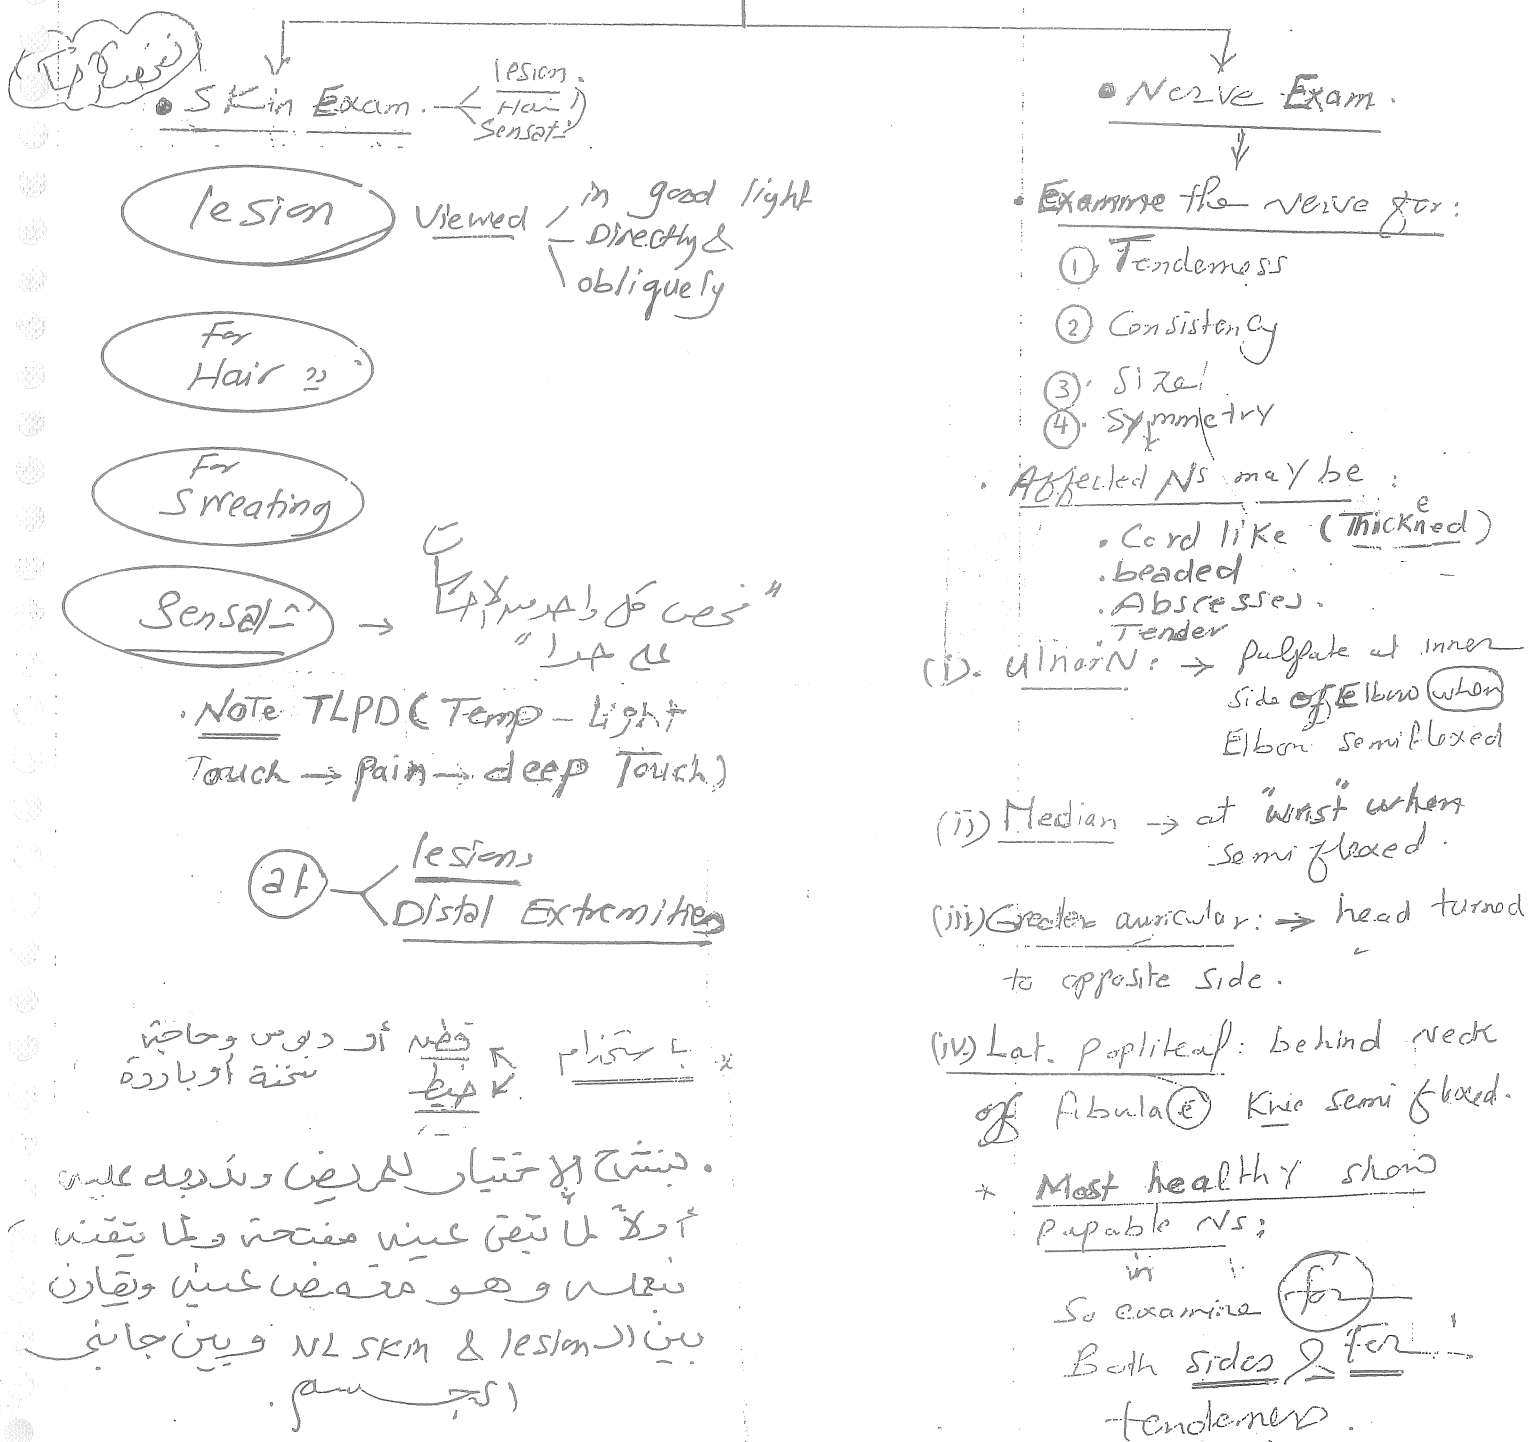 • Skin Exam.
lesion.
Hair
Sensatː
lesion
Viewed
in good light
Directly &
obliquely
For
Hair
For
Sweating
Sensatː →
"نفحص كل واحد من الإحساسات
على حدا"
. Note TLPD (Temp – Light
Touch → Pain → deep Touch)
at
lesions
Distal Extremities
* باستخدام
قطنه أو دبوس وحاجة
خيط
سخنة أو باردة
. بنشرح الإختبار للمريض وندربه عليه
أولاً لما تبقى عينه مفتحة ولما يتقنه
نعمله وهو مغمض عينيه ونقارن
بين الـ lesion & NL skin وبين جانبى
الجسم.
• Nerve Exam.
• Examine the nerve for:
① Tenderness
② Consistency
③ Size
④ Symmetry
. Affected Ns may be :
. Cord like (Thickened)
. beaded
. Abscesses.
. Tender
(i). Ulnar N: → Pulpate at inner
side of Elbow when
Elbow semiflexed
(ii) Median → at "wrist" when
semi flexed.
(iii) Greater auricular: → head turned
to opposite side.
(iv) Lat. popliteal: behind neck
of fibula c̄ Knee semi flexed.
* Most healthy show
papable Ns;
So examine for
Both sides & for
tenderness.